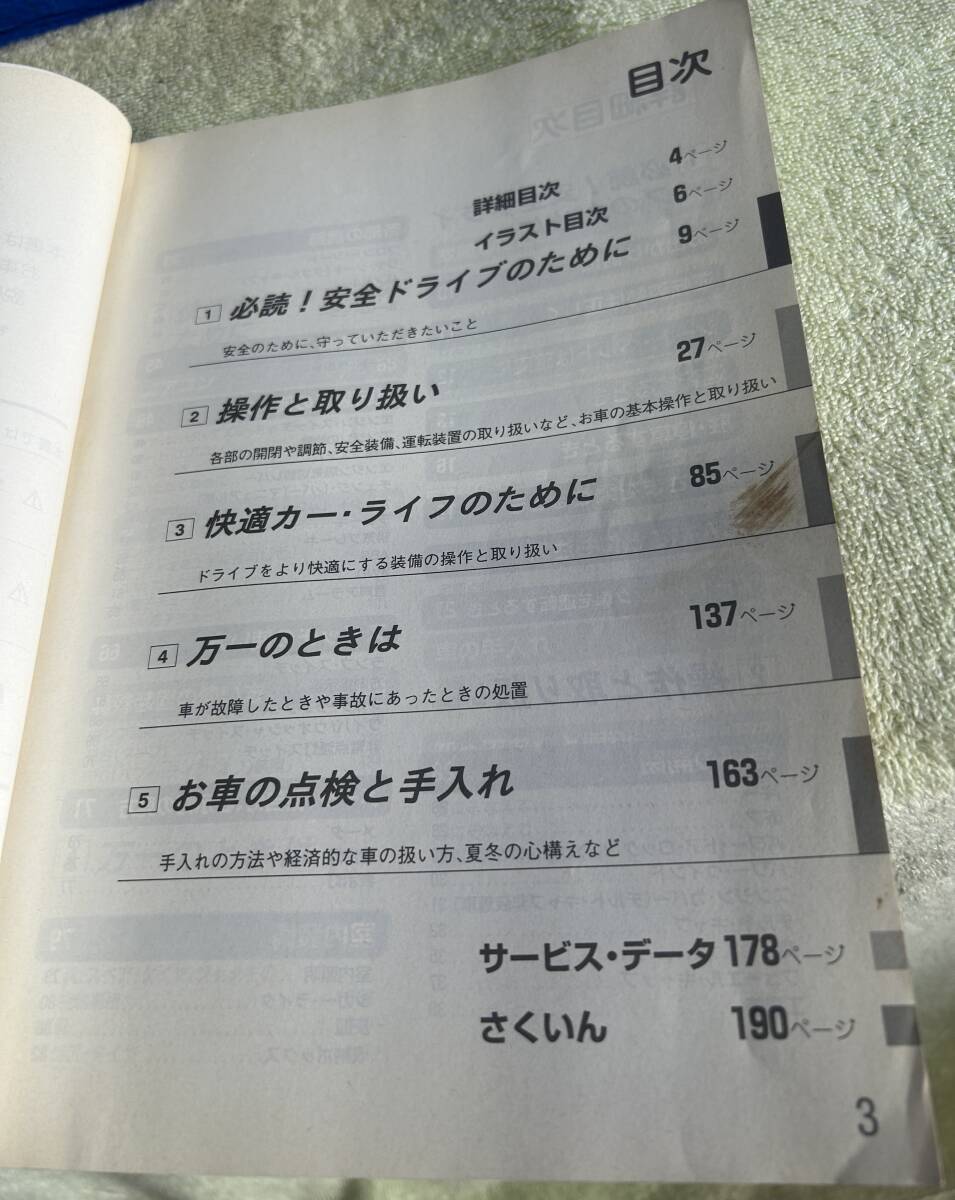 目次
詳細目次 4ページ
イラスト目次 6ページ
1 必読！安全ドライブのために 9ページ
安全のために、守っていただきたいこと
2 操作と取り扱い 27ページ
各部の開閉や調節、安全装備、運転装置の取り扱いなど、お車の基本操作と取り扱い
3 快適カー・ライフのために 85ページ
ドライブをより快適にする装備の操作と取り扱い
4 万一のときは 137ページ
車が故障したときや事故にあったときの処置
5 お車の点検と手入れ 163ページ
手入れの方法や経済的な車の扱い方、夏冬の心構えなど
サービス・データ 178ページ
さくいん 190ページ
3